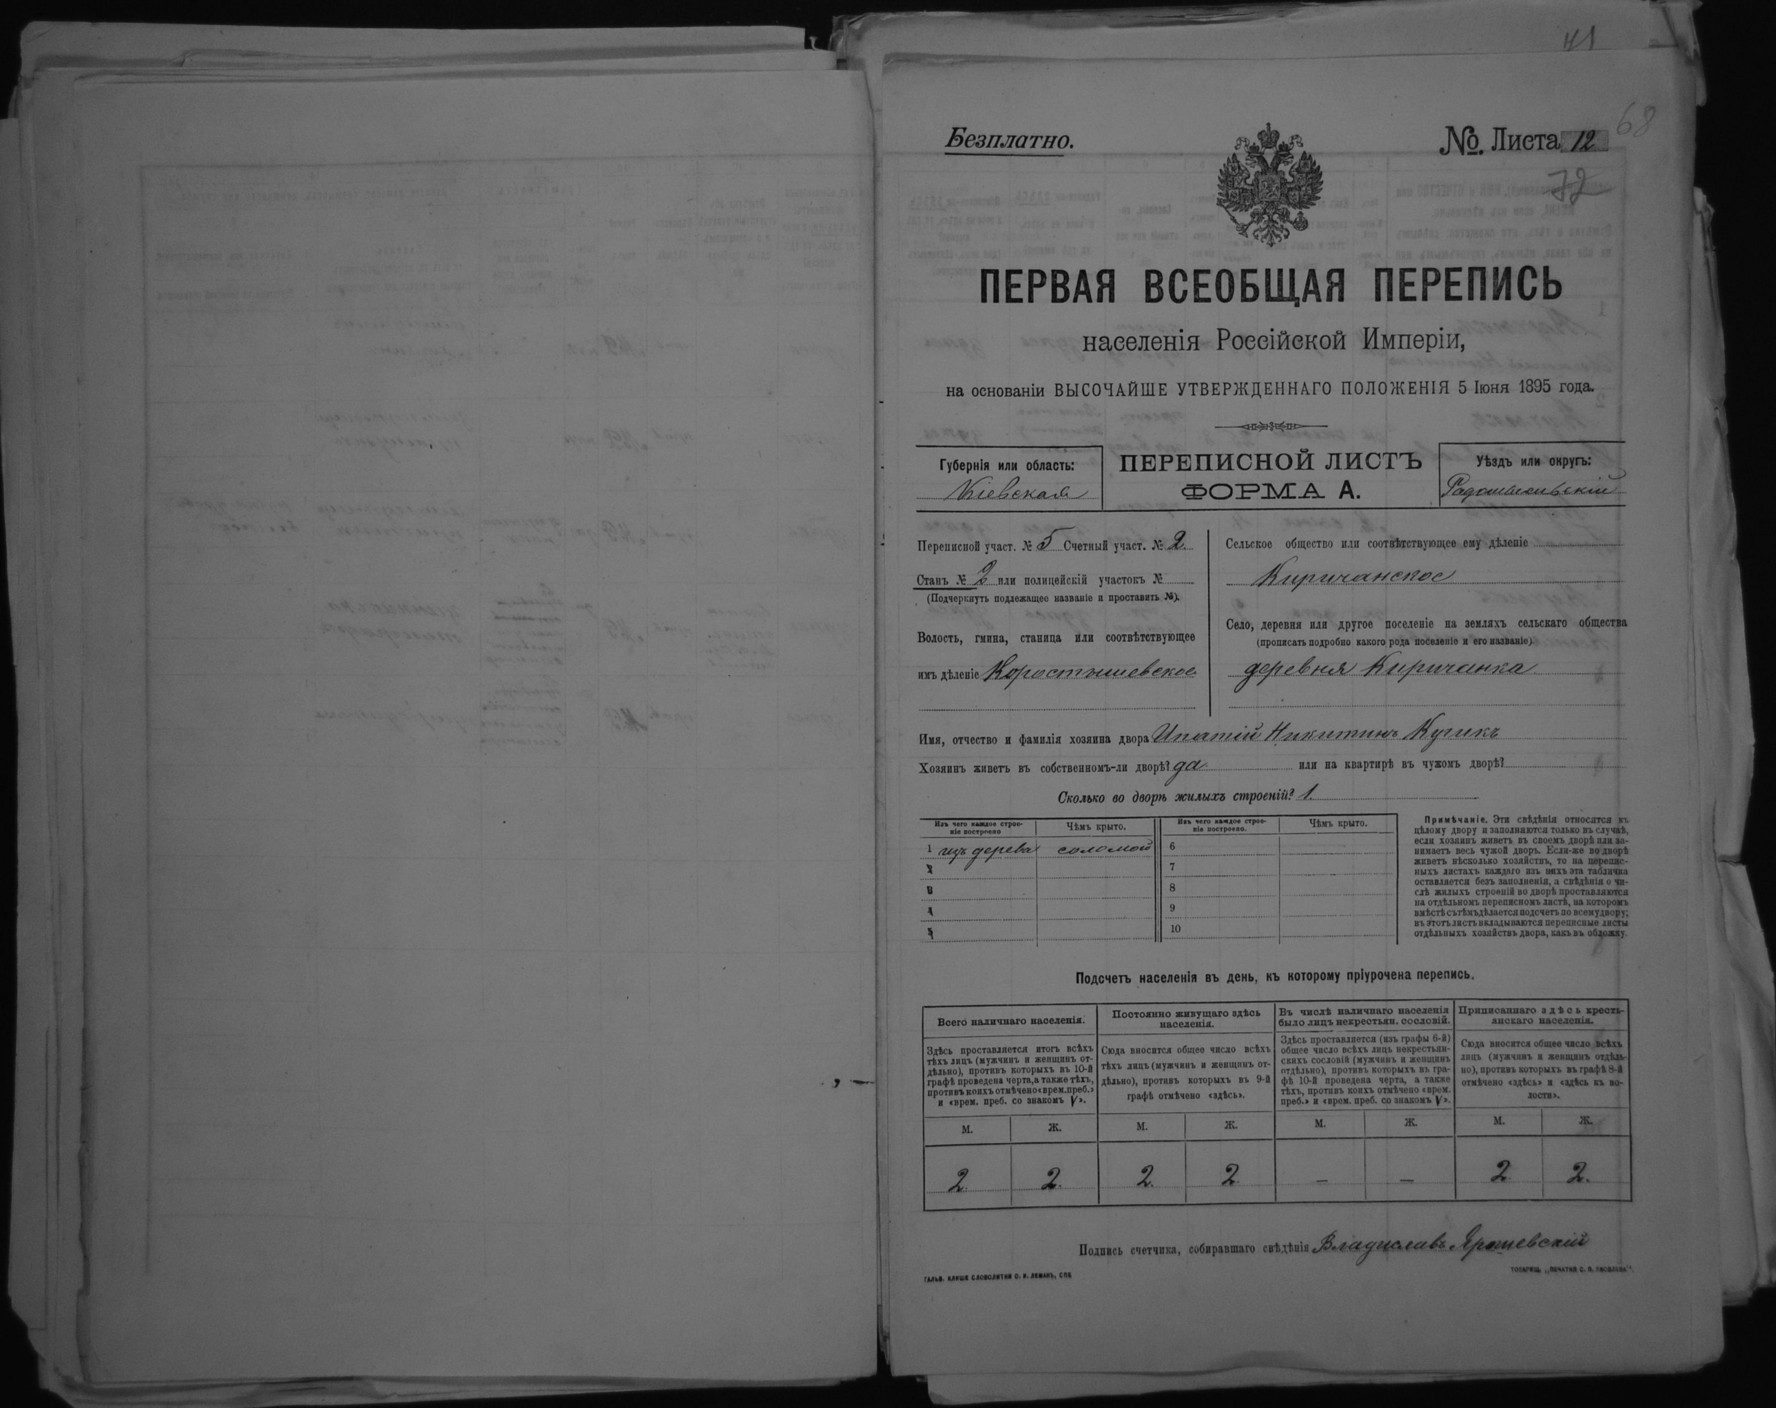 41
68
Безплатно.
№. Листа 12
72
ПЕРВАЯ ВСЕОБЩАЯ ПЕРЕПИСЬ
населенія Россійской Имперіи,
на основаніи ВЫСОЧАЙШЕ УТВЕРЖДЕННАГО ПОЛОЖЕНІЯ 5 Іюня 1895 года.
Губернія или область:
Кіевская
ПЕРЕПИСНОЙ ЛИСТЪ
ФОРМА А.
Уѣздъ или округъ:
Радомысльскій
Переписной участ. № 5 Счетный участ. № 2.
Станъ № 2 или полицейскій участокъ №
(Подчеркнуть подлежащее названіе и проставить №).
Волость, гмина, станица или соотвѣтствующее
имъ дѣленіе Коростышевское
Сельское общество или соотвѣтствующее ему дѣленіе
Киричанское
Село, деревня или другое поселеніе на земляхъ сельскаго общества
(прописать подробно какого рода поселеніе и его названіе).
деревня Киричанка
Имя, отчество и фамилія хозяина двора Ипатій Никитинъ Кугукъ
Хозяинъ живетъ въ собственномъ-ли дворѣ? да или на квартирѣ въ чужомъ дворѣ?
Сколько во дворѣ жилыхъ строеній? 1.
Изъ чего каждое строе-
ніе построено
Чѣмъ крыто.
Изъ чего каждое строе-
ніе построено.
Чѣмъ крыто.
1 изъ дерева соломой 6
2 7
3 8
4 9
5 10
Примѣчаніе. Эти свѣдѣнія относятся къ
цѣлому двору и заполняются только въ случаѣ,
если хозяинъ живетъ въ своемъ дворѣ или за-
нимаетъ весь чужой дворъ. Если-же во дворѣ
живетъ нѣсколько хозяйствъ, то на перепис-
ныхъ листахъ каждаго изъ нихъ эта табличка
оставляется безъ заполненія, а свѣдѣнія о чи-
слѣ жилыхъ строеній во дворѣ проставляются
на отдѣльномъ переписномъ листѣ, на которомъ
вмѣстѣ съ тѣмъ дѣлается подсчетъ по всему двору;
въ этотъ листъ вкладываются переписные листы
отдѣльныхъ хозяйствъ двора, какъ въ обложку.
Подсчетъ населенія въ день, къ которому пріурочена перепись.
Всего наличнаго населенія.
Здѣсь проставляется итогъ всѣхъ
тѣхъ лицъ (мужчинъ и женщинъ от-
дѣльно), противъ которыхъ въ 10-й
графѣ проведена черта, а также тѣхъ,
противъ коихъ отмѣчено «врем. преб.»
и «врем. преб. со знакомъ V».
Постоянно живущаго здѣсь
населенія.
Сюда вносится общее число всѣхъ
тѣхъ лицъ (мужчинъ и женщинъ от-
дѣльно), противъ которыхъ въ 9-й
графѣ отмѣчено «здѣсь».
Въ числѣ наличнаго населенія
было лицъ некрестьян. сословій.
Здѣсь проставляется (изъ графы 6-й)
общее число всѣхъ лицъ некрестьян-
скихъ сословій (мужчинъ и женщинъ
отдѣльно), противъ которыхъ въ гра-
фѣ 10-й проведена черта, а также
тѣхъ, противъ коихъ отмѣчено «врем.
преб.» и «врем. преб. со знакомъ V».
Приписаннаго здѣсь кресть-
янскаго населенія.
Сюда вносится общее число всѣхъ
лицъ (мужчинъ и женщинъ отдѣль-
но), противъ которыхъ въ графѣ 8-й
отмѣчено «здѣсь» и «здѣсь въ во-
лости».
М. Ж. М. Ж. М. Ж. М. Ж.
2 2. 2. 2 — — 2 2.
Подпись счетчика, собиравшаго свѣдѣнія Владиславъ Ярошевскій
ГАЛЬВ. КЛИШЕ СЛОВОЛИТНИ О. И. ЛЕМАНЪ, СПБ
ТОВАРИЩ. „ПЕЧАТНЯ С. П. ЯКОВЛЕВА“.